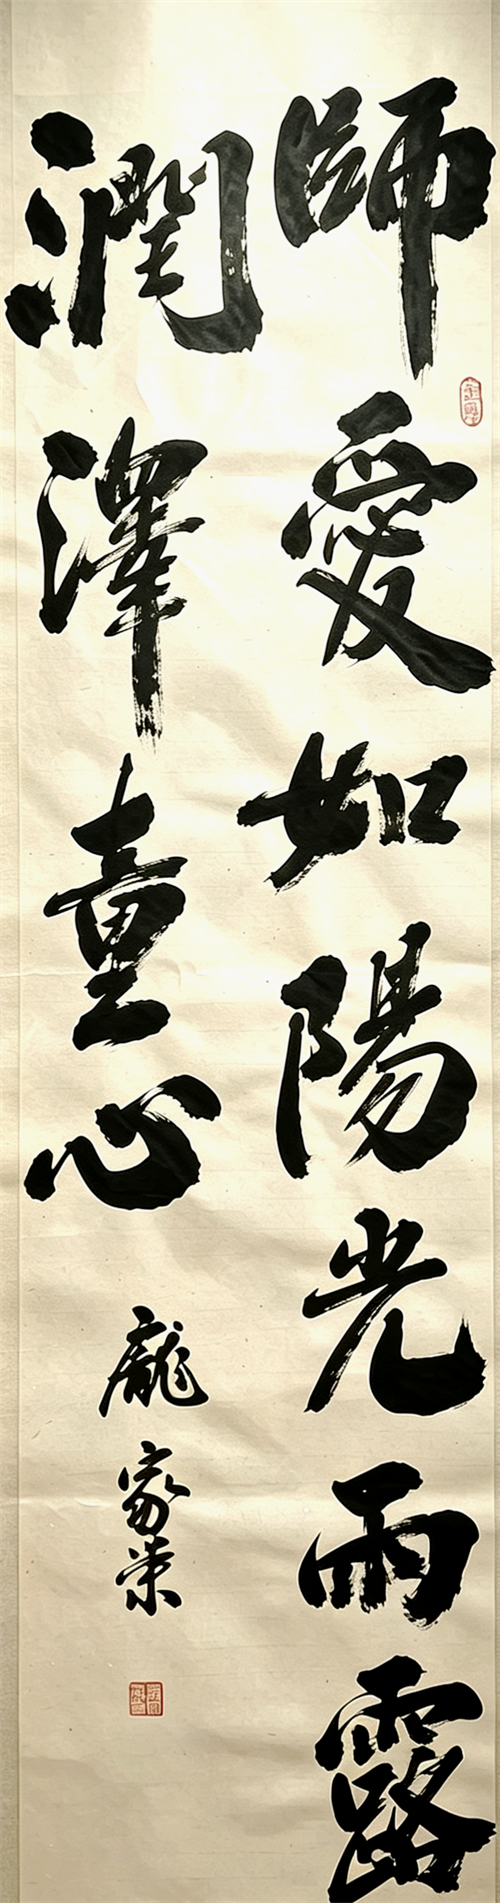 師愛如陽光雨露
潤澤童心
龐家榮